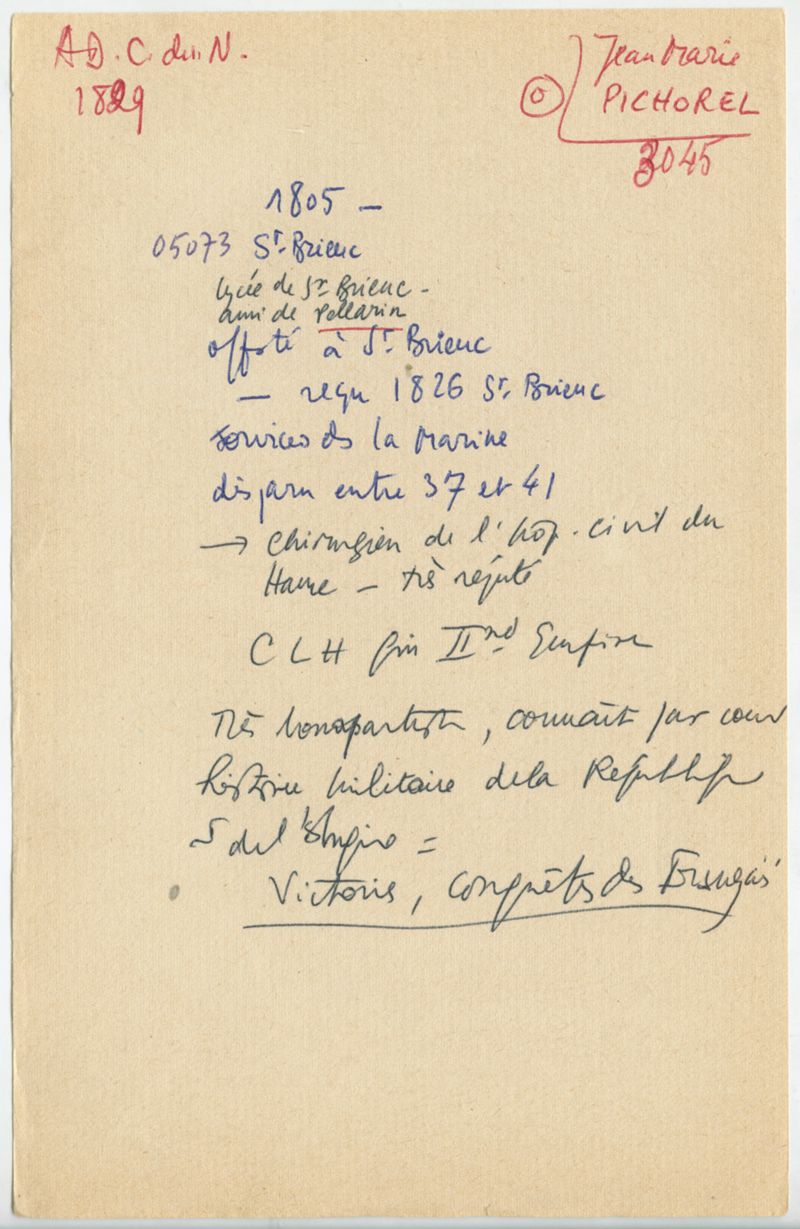 A D. C. du N.
1829
Jean Marie
O PICHOREL
3045
1805 —
05073 St. Brieuc
lycée de St Brieuc -
ami de Pellarin
à St. Brieuc
— reçu 1826 St. Brieuc
services ds la Marine
disparu entre 37 et 41
→ chirurgien de l'hôp. civil du
Havre — très réputé
C L H fin IInd Empire
Très bonapartiste, connaît par cœur
histoire militaire de la République
de l'Empire =
Victoires, Conquêtes des Français